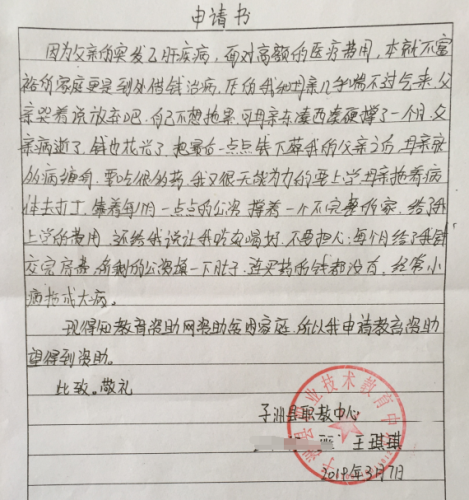 申请书
因为父亲的突发乙肝疾病，面对高额的医疗费用，本就不富
裕的家庭更是到处借钱治病，压的我和母亲几乎喘不过气来，父
亲哭着说放弃吧，自己不想拖累，可母亲东凑西凑硬撑了一个月，父
亲病逝了，钱也花光了，把最后一点点钱下葬我的父亲之后，母亲
的病缠身，要吃很多药，我又很无能为力的要上学母亲拖着病
体去打工，靠着每月一点点的公资撑着一个不完整的家，给我
上学的费用，还给我说让我吃好喝好，不要担心，每个月给了我钱
交完房费，所剩的公资填一下肚子，连买药的钱都没有，经常小
病拖成大病。
现得知教育资助网资助贫困家庭，所以我申请教育资助
望得到资助。
此致。敬礼
子洲县职教中心
王琪琪
2019年3月7日
子洲县职业技术教育中心